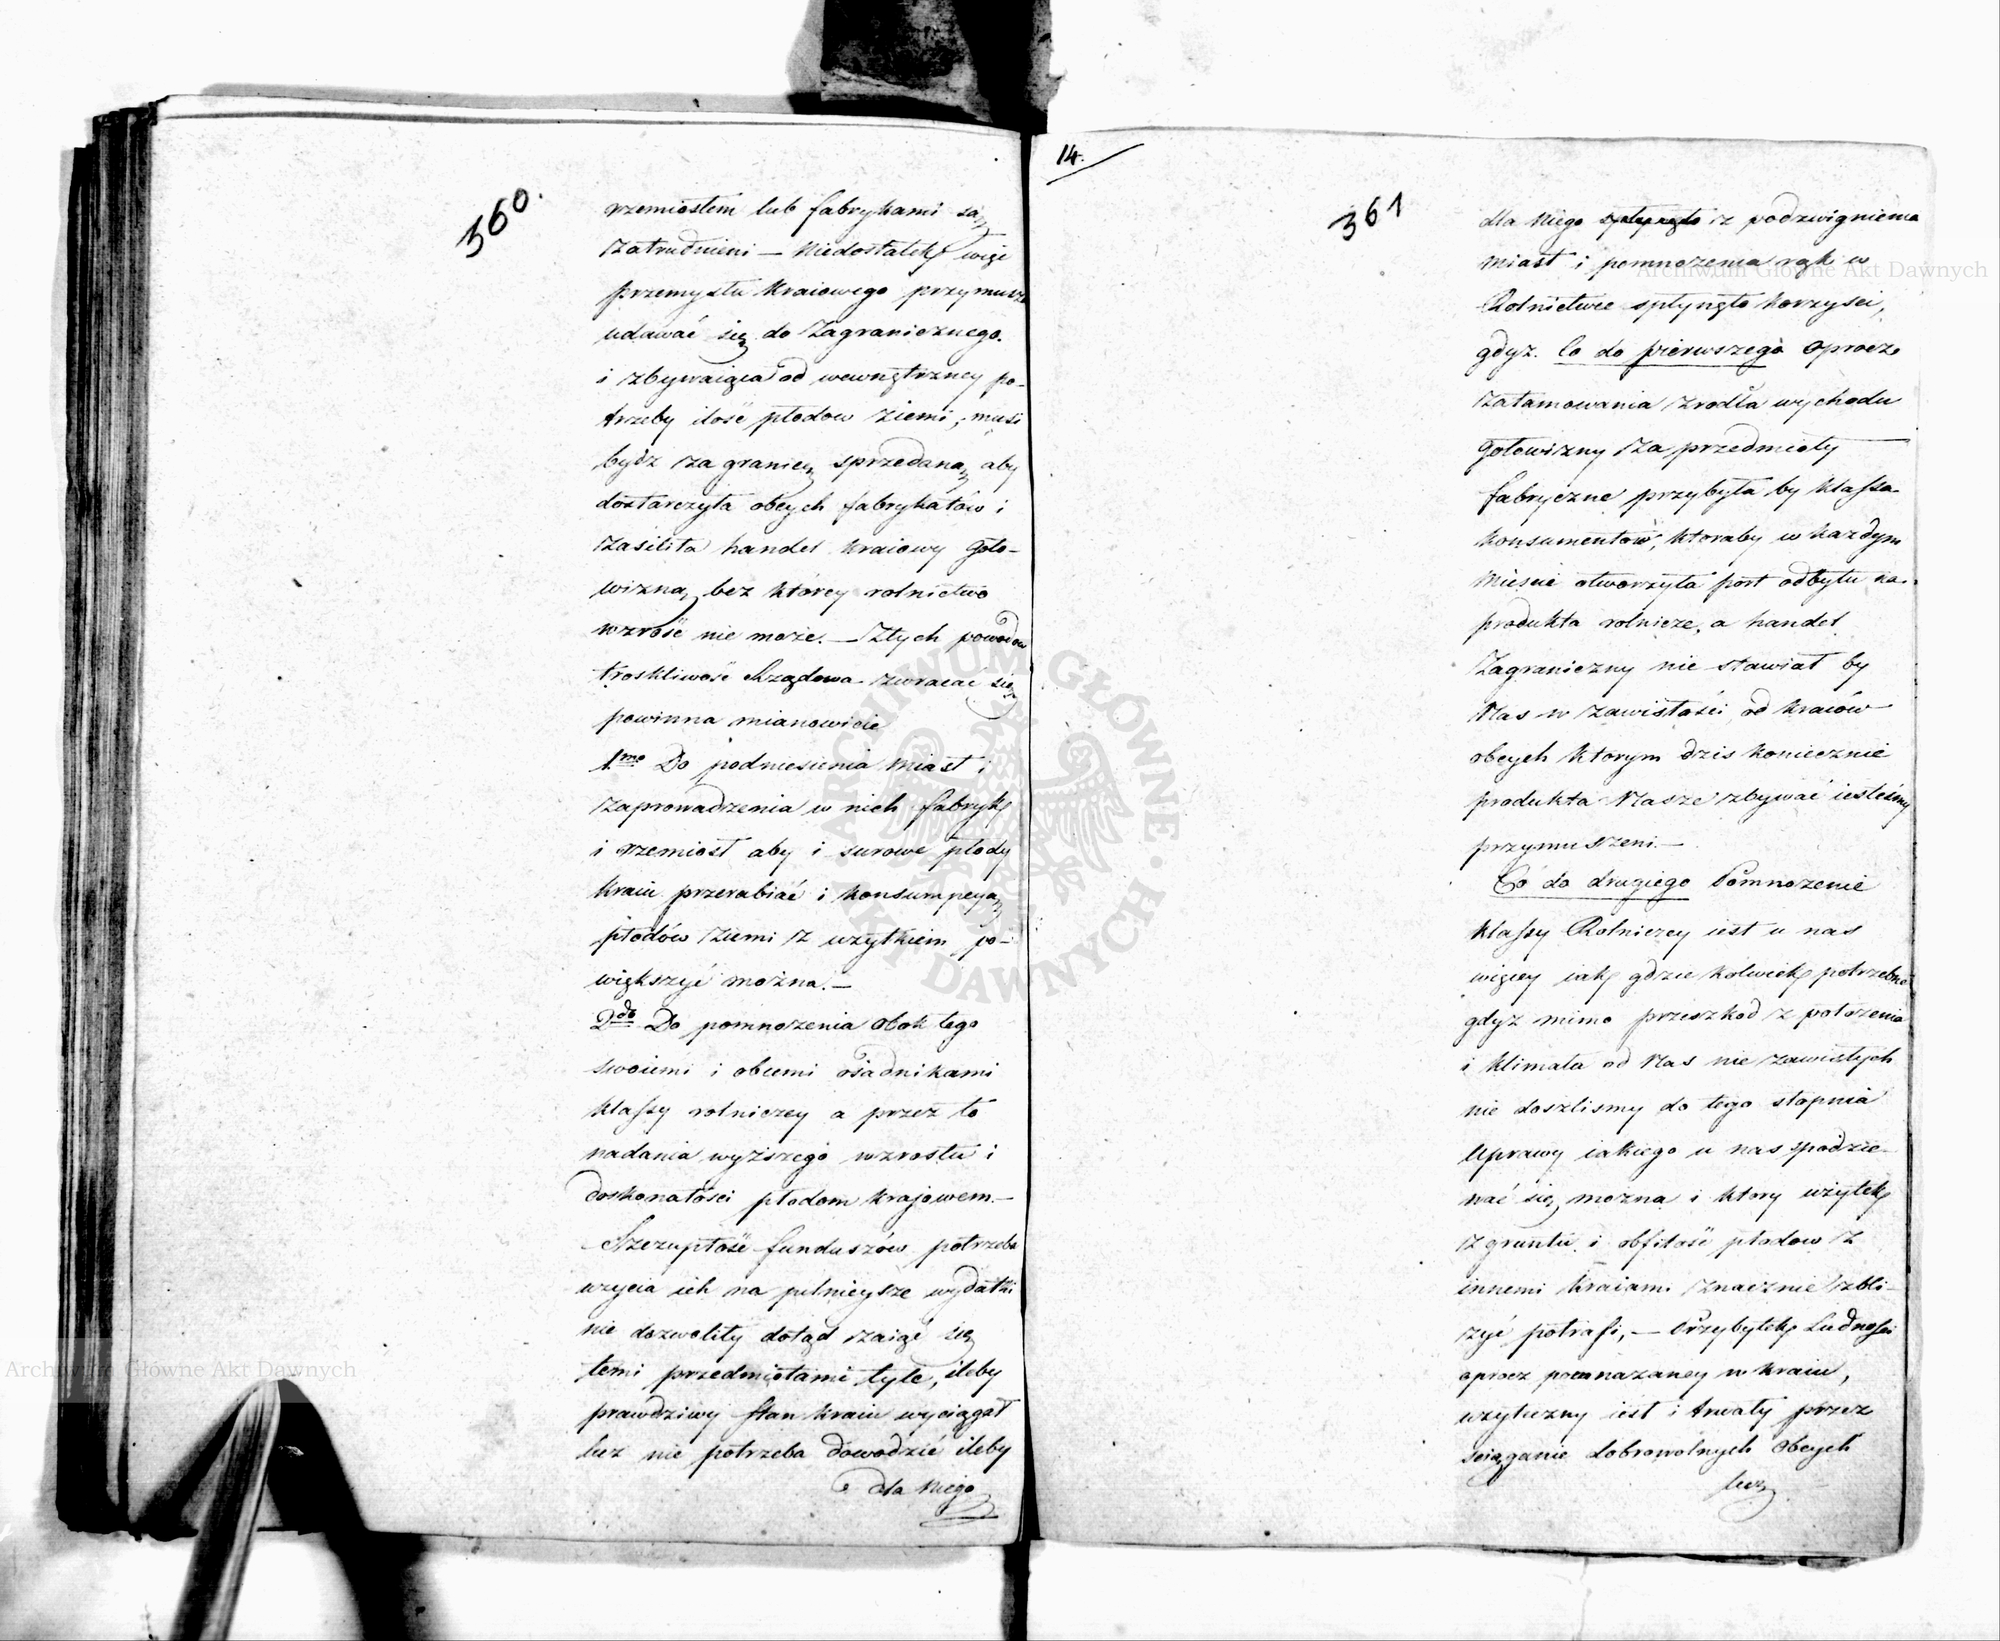 360.
rzemiosłem lub fabrykami są
zatrudnieni — Niedostatek więc
przemysłu kraiowego przymusza
udawać się do Zagranicznego.
i zbywaiąca od wewnętrzney po-
trzeby ilość płodow ziemi, musi
bydz za granicę sprzedaną, aby
dostarczyła obcych fabrykatów i
zasiliła handel kraiowy goto-
wizną, bez którey rolnictwo
wzrość nie może. — Z tych powodow
troskliwość Rządowa zwracać się
powinna mianowicie
1mo Do podniesienia Miast i
zaprowadzenia w nich fabryk
i rzemiosł aby i surowe płody
kraiu przerabiać i konsumpcyą
płodów ziemi z uzytkiem po-
większyć można. —
2do Do pomnozenia obok tego
swoiemi i obcemi osadnikami
klassy rolniczey a przez to
nadania wyższego wzrostu i
doskonałości płodom krajowem. —
Szczupłość funduszów potrzeba
uzycia ich na pilnieysze wydatki
nie dozwoliły dotąd zaiąć się
temi przedmiotami tyle, ileby
prawdziwy stan kraiu wyciągał
lecz nie potrzeba dowodzić ileby
dla Niego
14.
361
dla Niego spłynęło z podzwignienia
Miast i pomnozenia rąk w
Rolnictwie spłynęło korzysci,
gdyz. Co do pierwszego oprocz
zatamowania zrodła wychodu
gotowizny za przedmioty
fabryczne przybyła by klassa
konsumentów, ktoraby w kazdym
Miescie otworzyła port odbytu na
produkta rolnicze, a handel
Zagraniczny nie stawiał by
Nas w zawisłości od kraiów
obcych ktorym dzis koniecznie
produkta Nasze zbywać iesteśmy
przymuszeni. —
Co do drugiego Pomnozenie
klassy Rolniczey iest u nas
więcey iak gdzie kolwiek potrzebne
gdyz mimo przeszkod z połozenia
i klimatu od Nas nie zawisłych
nie doszlismy do tego stopnia
Uprawy iakiego u nas spodzie-
wać się mozna i ktory uzytek
z gruntu i obfitość płodow z
innemi kraiami znacznie zbli-
zyć potrafi, — Przybytek Ludności
oprocz pomnazaney w kraiu,
uzyteczny iest i trwały przez
sciąganie dobrowolnych Obcych
lecz
Archiwum Główne Akt Dawnych
Archiwum Główne Akt Dawnych
ARCHIWUM GŁÓWNE · AKT DAWNYCH ·